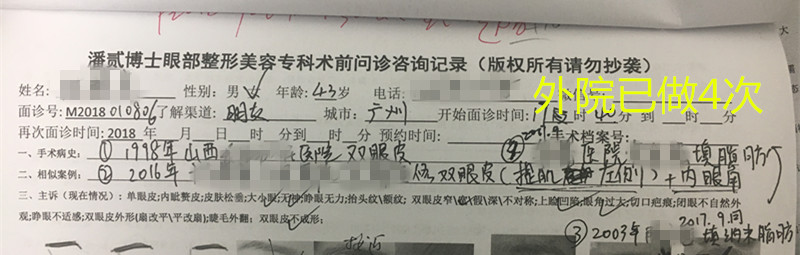 潘贰博士眼部整形美容专科术前问诊咨询记录（版权所有请勿抄袭）
外院已做4次
姓名: 性别: 男 女 年龄:43岁 电话:
面诊号:M2018010806了解渠道:朋友 城市:广州 开始面诊时间: 时 分到 时 分
再次面诊时间:2018 年 月 日 时 分到 时 分 预约时间: 手术档案号:
一、手术病史: ①1998年山西 医院 双眼皮 ④ 医院 填脂肪
二、相似案例: ②2016年 修双眼皮(提肌 左侧)+内眼角
三、主诉（现在情况）: 单眼皮;内眦赘皮;皮肤松垂;大小眼;无神;睁眼无力;抬头纹\额纹; 双眼皮窄\宽\假\深\不对称;上睑凹陷;眼角过大;切口疤痕;闭眼不自然外
观;睁眼不适感;双眼皮外形(扇改平\平改扇);睫毛外翻; 双眼皮不成形;
③2003年 2017.9月 填纳米脂肪